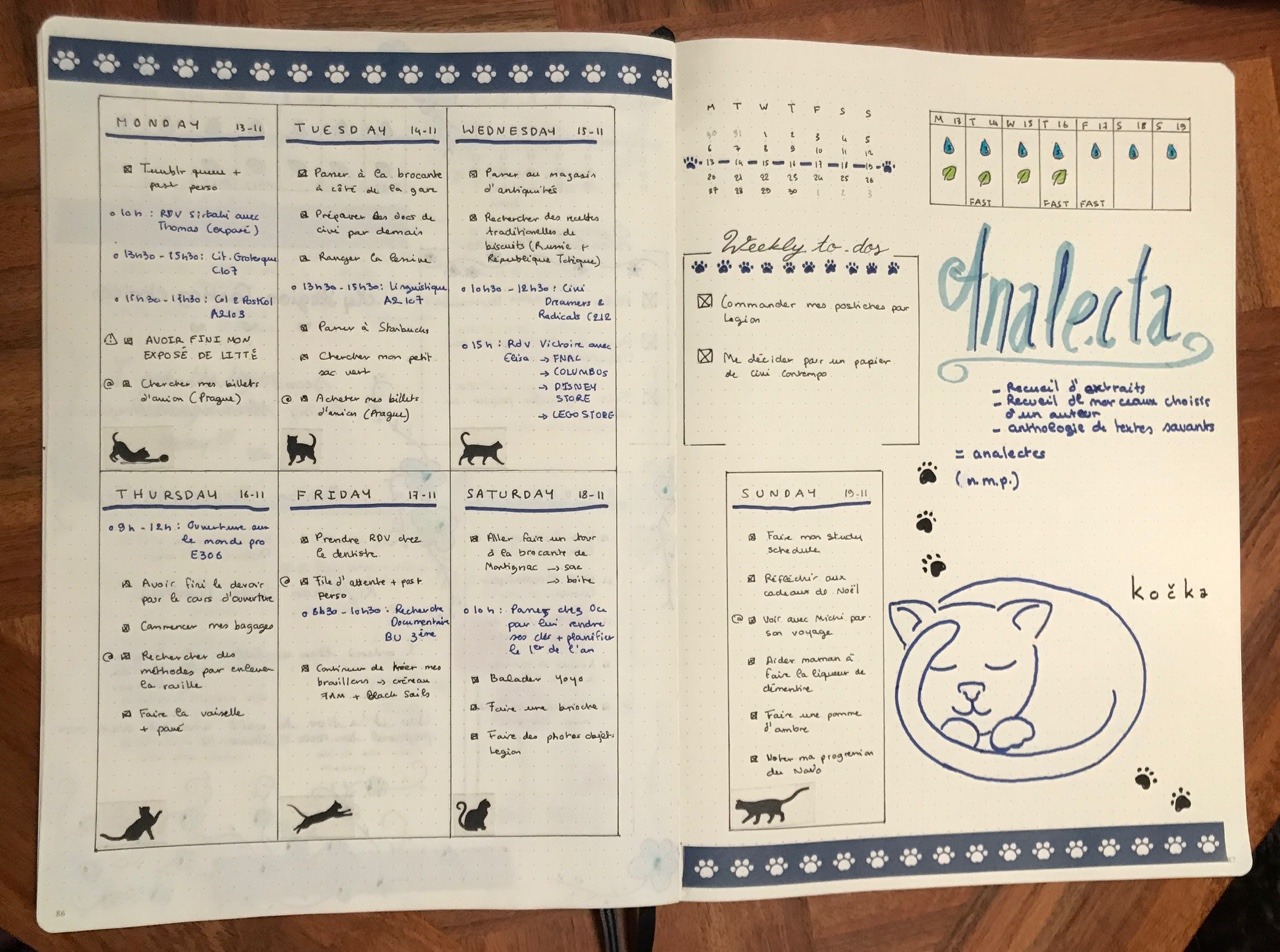 MONDAY 13-11
Tumblr queue +
post perso
10h : RDV Sirtaki avec
Thomas (exposé)
13h30 - 15h30 : Lit. Grotesque
C107
15h30 - 17h30 : Col & PostCol
A2103
AVOIR FINI MON
EXPOSÉ DE LITTÉ
@ Chercher mes billets
d'avion (Prague)
TUESDAY 14-11
Passer à la brocante
à côté de la gare
Préparer les docs de
civi pour demain
Ranger la lessive
13h30 - 15h30 : Linguistique
A2107
Passer à Starbucks
Chercher mon petit
sac vert
@ Acheter mes billets
d'avion (Prague)
WEDNESDAY 15-11
Passer au magasin
d'antiquités
Rechercher des recettes
traditionelles de
biscuits (Russie +
République Tchèque)
10h30 - 12h30 : Civi
Dreamers &
Radicals C212
15h : Rdv Victoire avec
Elisa → FNAC
→ COLUMBUS
→ DISNEY
STORE
→ LEGO STORE
THURSDAY 16-11
9h - 12h : Ouverture sur
le monde pro
E306
Avoir fini le devoir
pour le cours d'ouverture
Commencer mes bagages
@ Rechercher des
méthodes pour enlever
la rouille
Faire la vaisselle
+ pavé
FRIDAY 17-11
Prendre RDV chez
le dentiste
@ File d'attente + post
perso
8h30 - 10h30 : Recherche
Documentaire
BU 3ème
Continuer de trier mes
brouillons → créneau
7AM + Black Sails
SATURDAY 18-11
Aller faire un tour
à la brocante de
Montignac → sac
→ boîte
10h : Passer chez
pour lui rendre
ses clés + planifier
le 1er de l'an
Balader Yoyo
Faire une brioche
Faire des photos objets
Legion
86
M T W T F S S
30 31 1 2 3 4 5
6 7 8 9 10 11 12
13 14 15 16 17 18 19
20 21 22 23 24 25 26
27 28 29 30 1 2 3
M 13 T 14 W 15 T 16 F 17 S 18 S 19
FAST FAST FAST
Weekly to-dos
Commander mes postiches pour
Legion
Me décider pour un papier
de civi contempo.
Analecta
- Recueil d'extraits
- Recueil de morceaux choisis
d'un auteur
- anthologie de textes savants
= analectes
(n.m.p.)
SUNDAY 19-11
Faire mon study
schedule
Réfléchir aux
cadeaux de Noël
@ Voir avec Michi pour
son voyage
Aider maman à
faire la liqueur de
clémentine
Faire une pomme
d'ambre
Noter ma progression
du NaNo
kočka